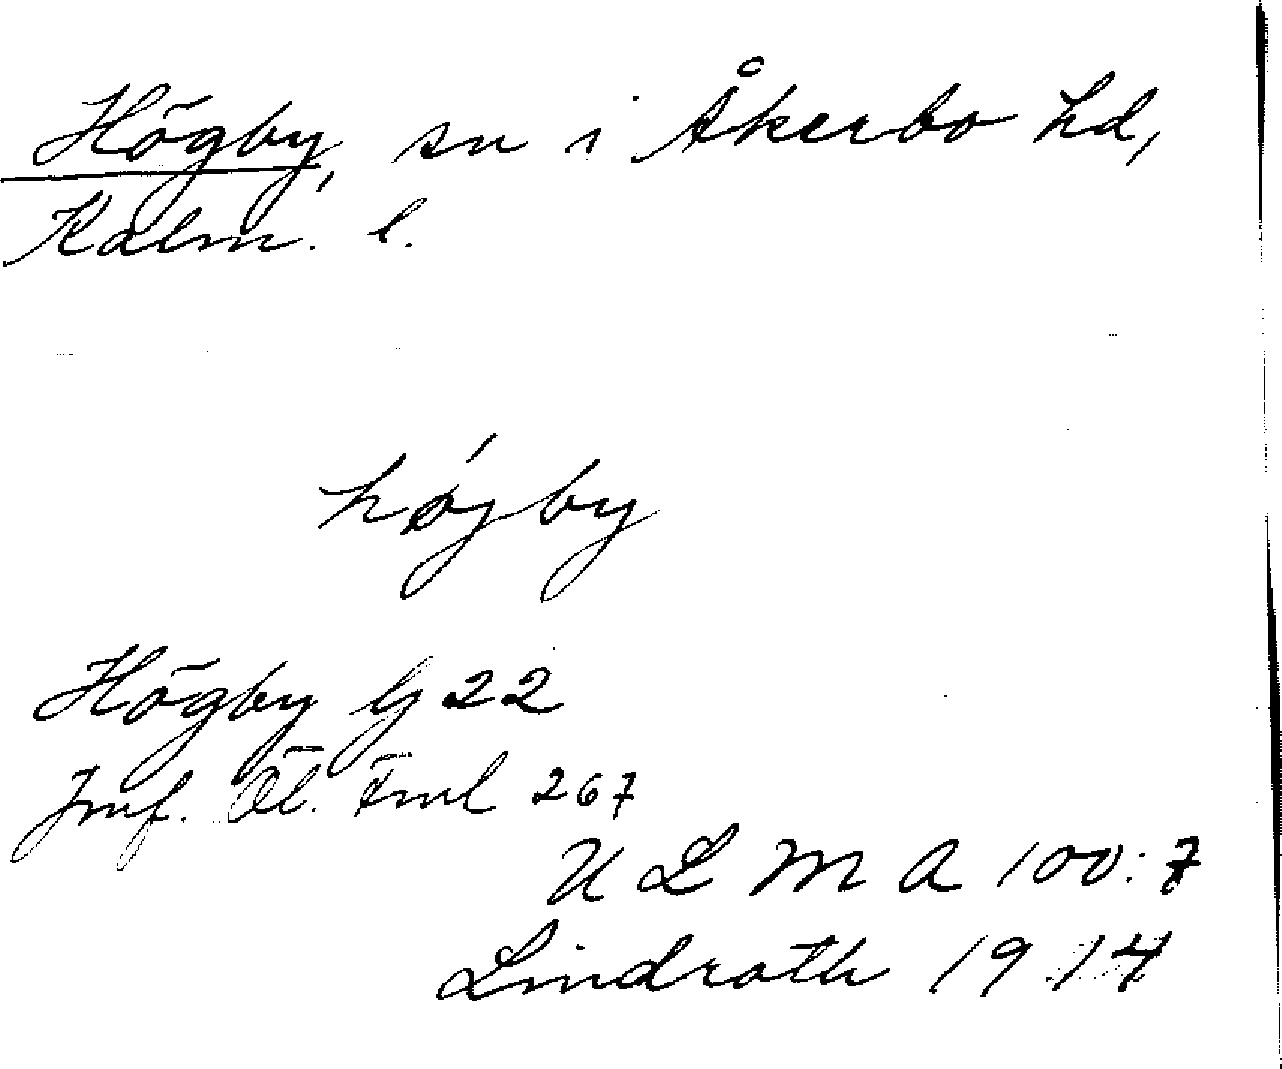 Högby, sn i Åkerbo hd,
Kalm. l.
hǿjby
Högby G 22
Jmf. Öl. Fml 267
U L M A 100:7
Lindroth 1914